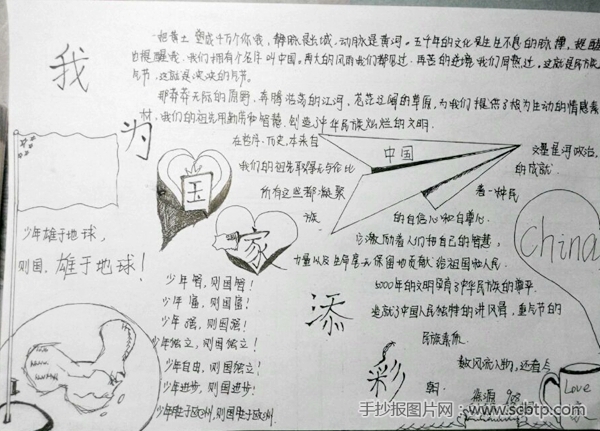 我为国家添彩
一把黄土塑成千万个你我，静脉是长城，动脉是黄河。五千年的文化是生生不息的脉搏，提醒
也提醒我，我们拥有个名字叫中国。再大的风雨我们都见过，再苦的逆境我们同熬过，这就是民族
气节，这就是泱泱的气节。
那莽莽无际的原野，奔腾浩荡的江河，苍茫辽阔的草原，为我们提供了极为生动的情感素
材，我们的祖先用勤劳和智慧，创造了中华民族灿烂的文明。
在哲学、历史、本来自 中国 文星星河政治，
我们的祖先取得无与伦比 的成就
所有这些都凝聚 着一种民
族 的自信心和自尊心。
少年雄于地球，
则国，雄于地球！
激励着人们把自己的智慧，
力量以及生命毫无保留地贡献给祖国和人民。
China
少年智，则国智！
少年富，则国富！
少年强，则国强！
少年独立，则国独立！
少年自由，则国独立！
少年进步，则国进步！
少年胜于欧洲，则国胜于欧洲。
5000年的文明孕育了中华民族的尊严
造就了中国人民独特的讲风骨，重气节的
民族素质。
数风流人物，还看今
朝
908
Love
手抄报图片网-www.scbtp.com